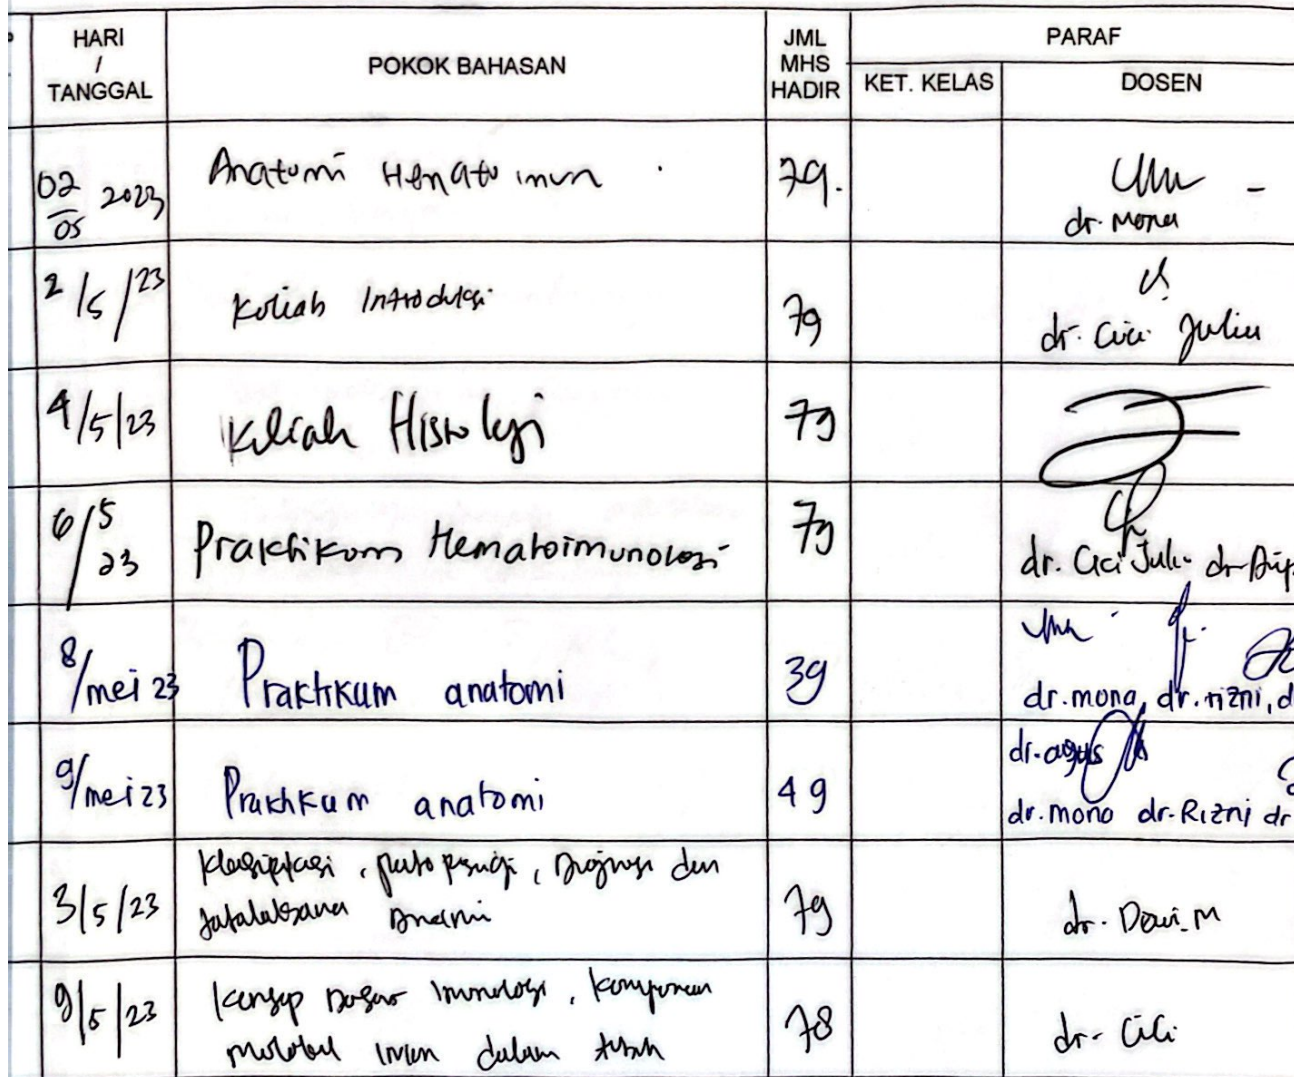 HARI / TANGGAL POKOK BAHASAN JML MHS HADIR PARAF
KET. KELAS DOSEN
02/05 2023 Anatomi Hematoimun 79.
dr. Mona
2/5/23 Kuliah Introduksi 79 dr. Cici Julia
4/5/23 Kuliah Histologi 79
6/5 23 Praktikum Hematoimunologi 79 dr. Cici Juli dr
8/mei 23 Praktikum anatomi 39 dr. mona, dr. rizni, d
9/mei 23 Praktikum anatomi 49 dr. agus
dr. mona dr. Rizni dr
3/5/23 Klasifikasi, patofisiologi, Diagnosis dan
tatalaksana Anemi 79 dr. Dewi. M
9/5/23 Konsep Dasar Imunologi, Komponen
molekul imun dalam tubuh 78 dr. Cici